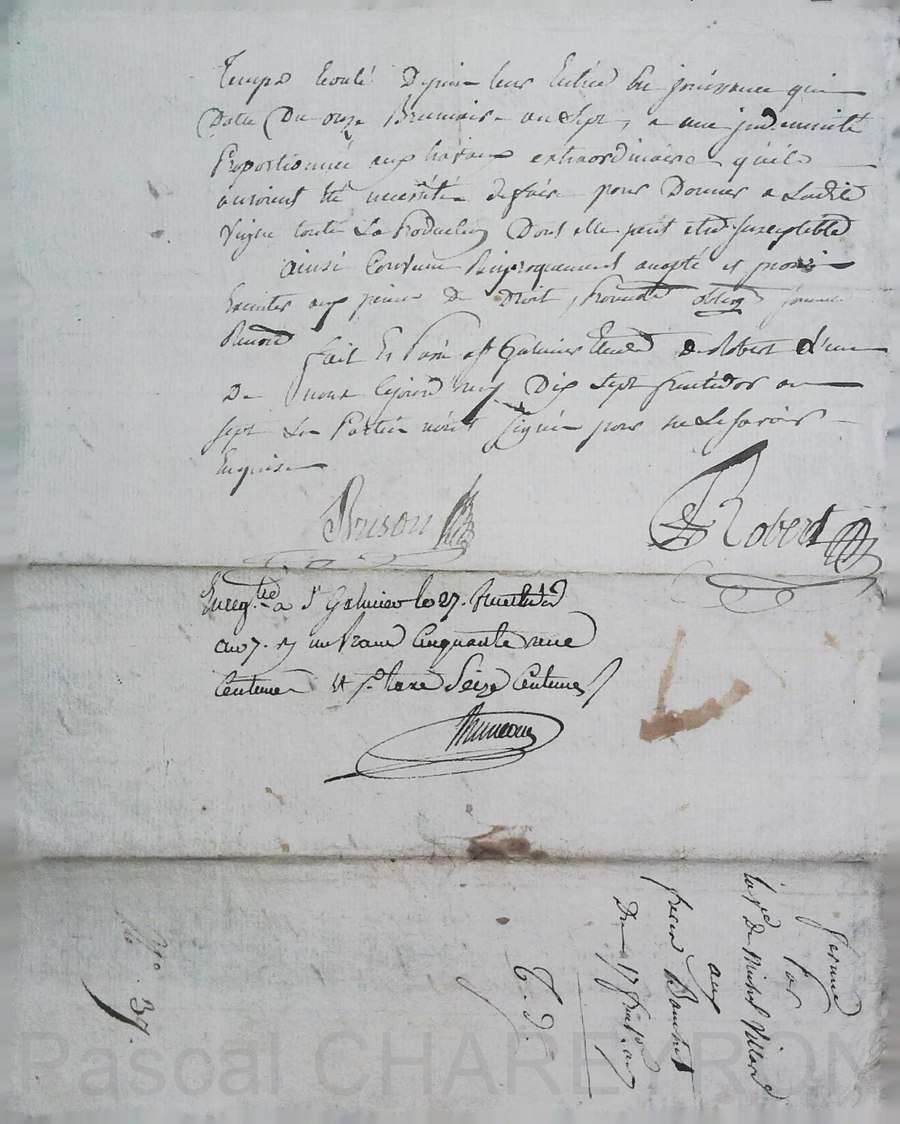 temps Ecoulé Depuis leur Entrée En jouissance qui
Date Du onze Brumaire an Sept, a une jndemnité
Proportionnée aux travaux extraordinaires qu'ils
auroient été necessités defaire pour Donner a Ladite
Vigne toute La Production Dont elle peut etre susceptible
ainsi Convenu Reciproquement accepté et promis
Executer aux peines de Droit,
fait Et Passé a st Galmier Etude de Robert L'un
De nous Cejourd'huy Dix sept fructidor an
sept Les Parties n'ont signé pour ne Le savoir
Enquises
Brison
Robert
Enregtré a St Galmier le 27. fructidor
an 7. un franc Cinquante une
Centimes Et pr taxe Seize Centimes
ferme
par
De Michel Villard
aux
freres
Du 17 fruct. an
No 37.
Pascal CHAREYRON